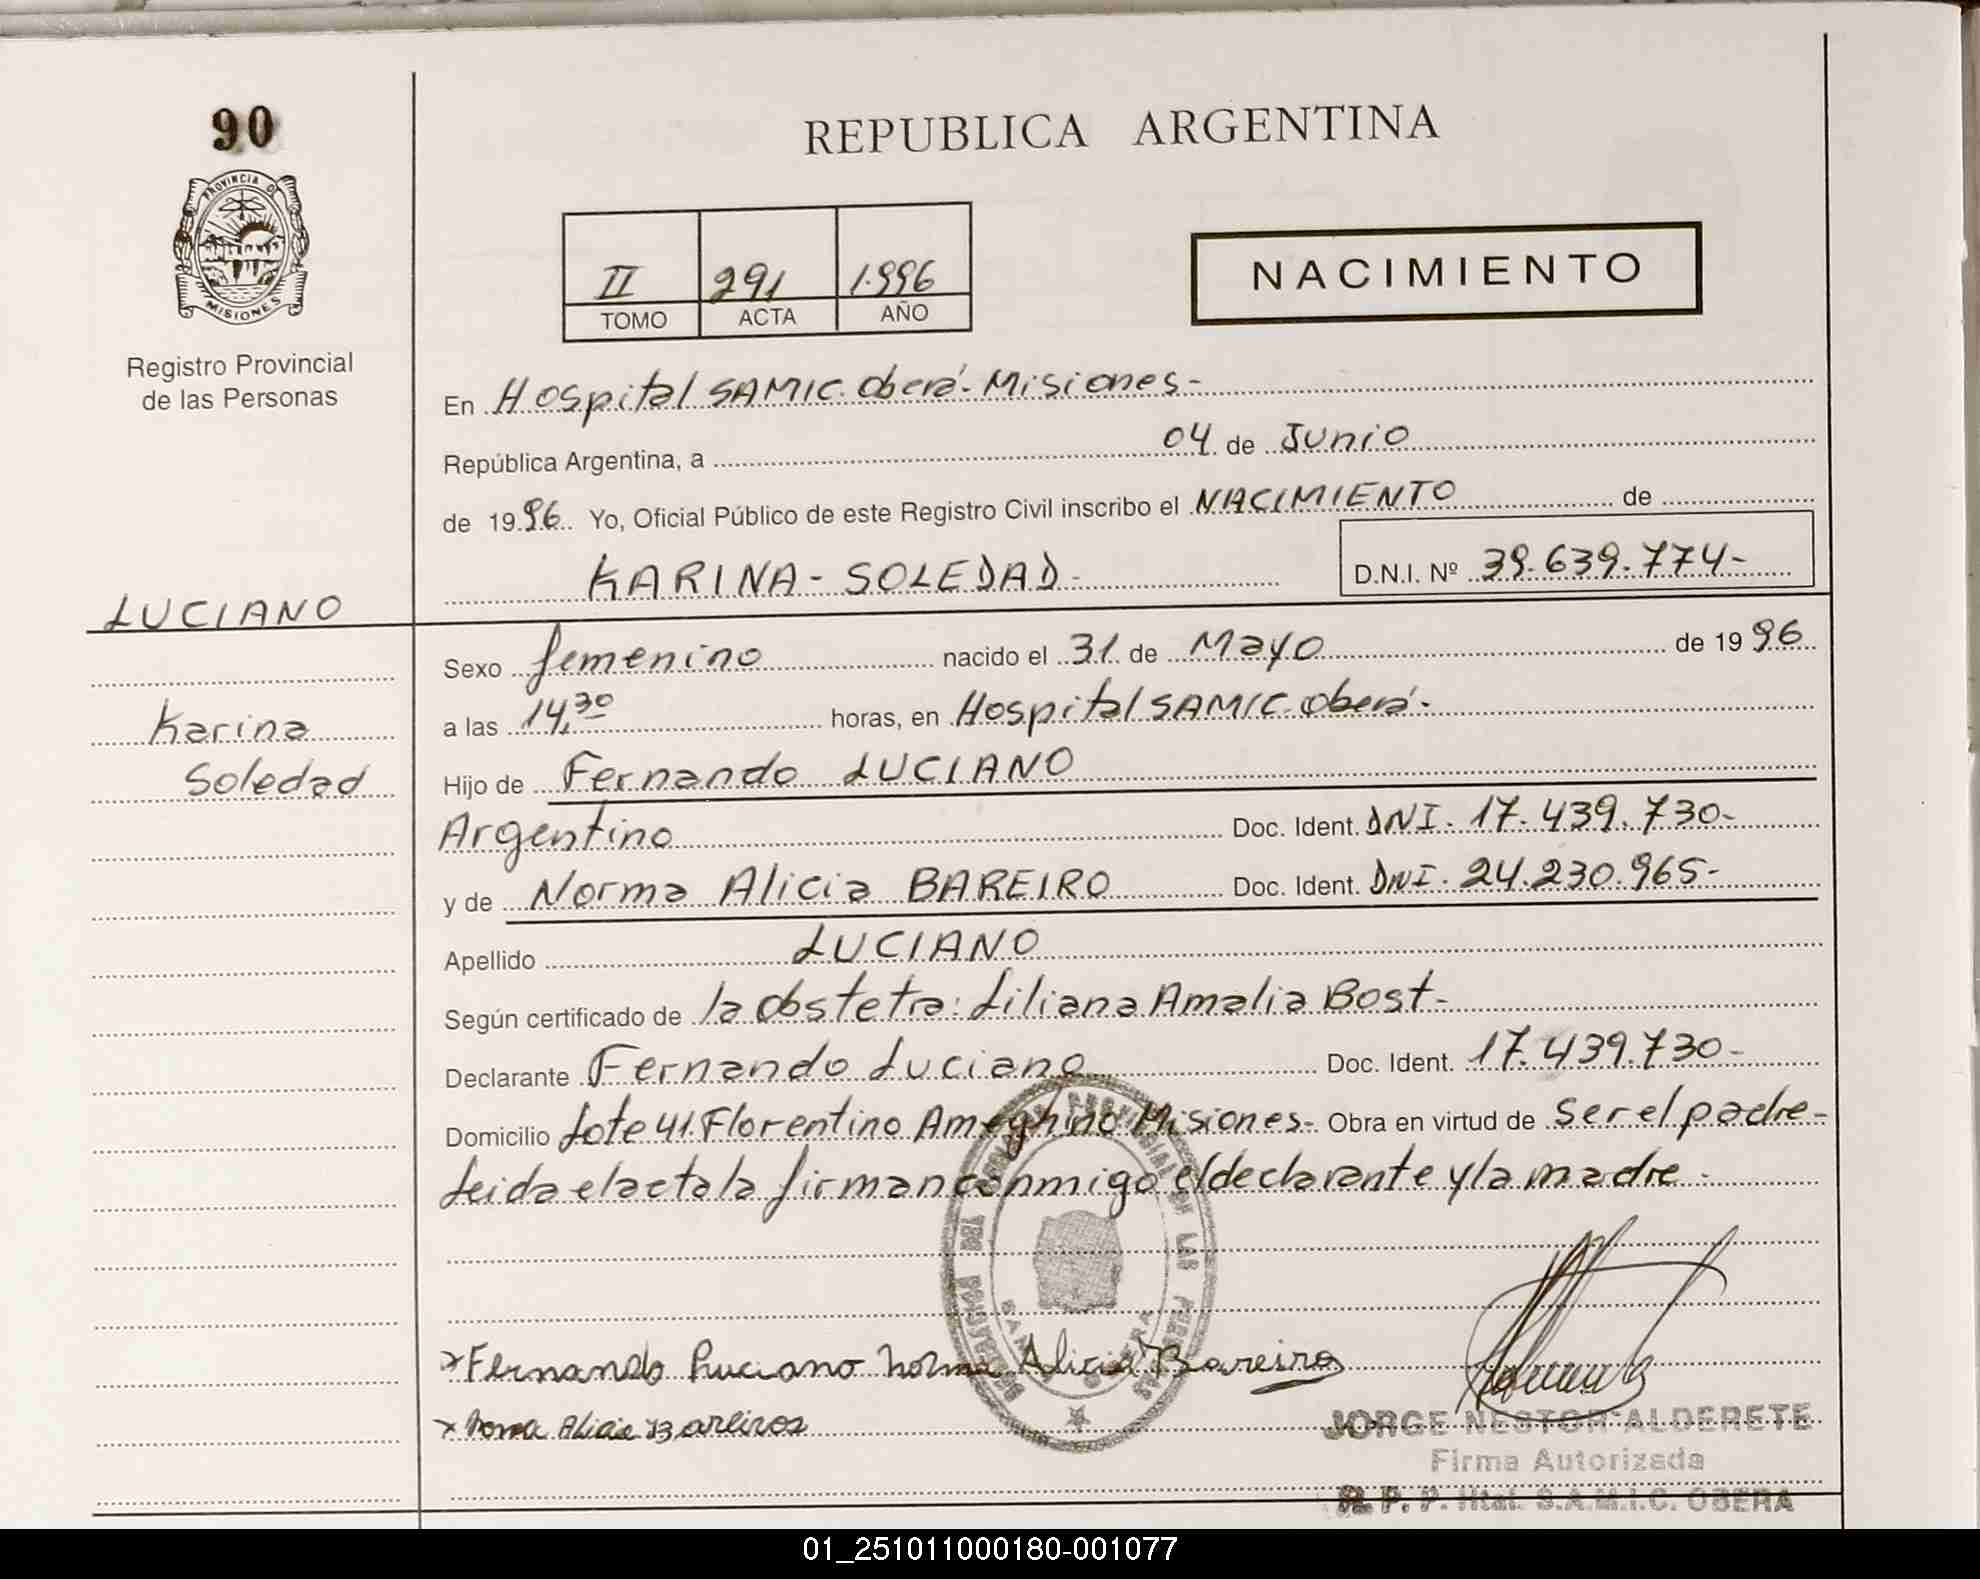 90
PROVINCIA D
MISIONES
Registro Provincial
de las Personas
REPUBLICA ARGENTINA
II 291 1.996
TOMO ACTA AÑO
NACIMIENTO
En Hospital SAMIC. Oberá - Misiones -
República Argentina, a 04 de Junio
de 1996 Yo, Oficial Público de este Registro Civil inscribo el NACIMIENTO de
KARINA - SOLEDAD - D.N.I. Nº 39.639.774-
LUCIANO
Karina
Soledad
Sexo femenino nacido el 31 de Mayo de 1996
a las 14,30 horas, en Hospital SAMIC. Oberá -
Hijo de Fernando LUCIANO
Argentino Doc. Ident. DNI. 17.439.730-
y de Norma Alicia BAREIRO Doc. Ident. DNI. 24.230.965-
Apellido LUCIANO
Según certificado de la Obstetra: Liliana Amalia Bost -
Declarante Fernando Luciano Doc. Ident. 17.439.730-
Domicilio Lote 41. Florentino Ameghino Misiones - Obra en virtud de ser el padre -
Leida el acta la firman conmigo el declarante y la madre -
x Fernando Luciano Norma Alicia Bareiro
x Norma Alicia Bareiros
JORGE NESTOR ALDERETE
Firma Autorizada
R. P. P. Htal. S.A.M.I.C. OBERA
01_251011000180-001077